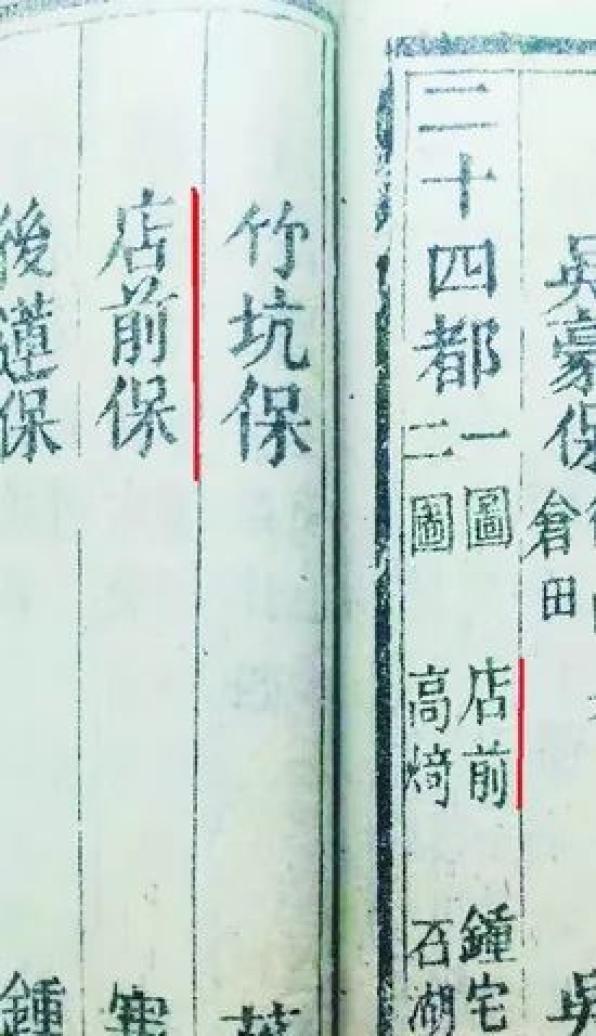 吳豪保 倉田
二十四都
一圖 店前 鍾宅
二圖 高 石湖
竹坑保
店前保
後蓮保 鍾